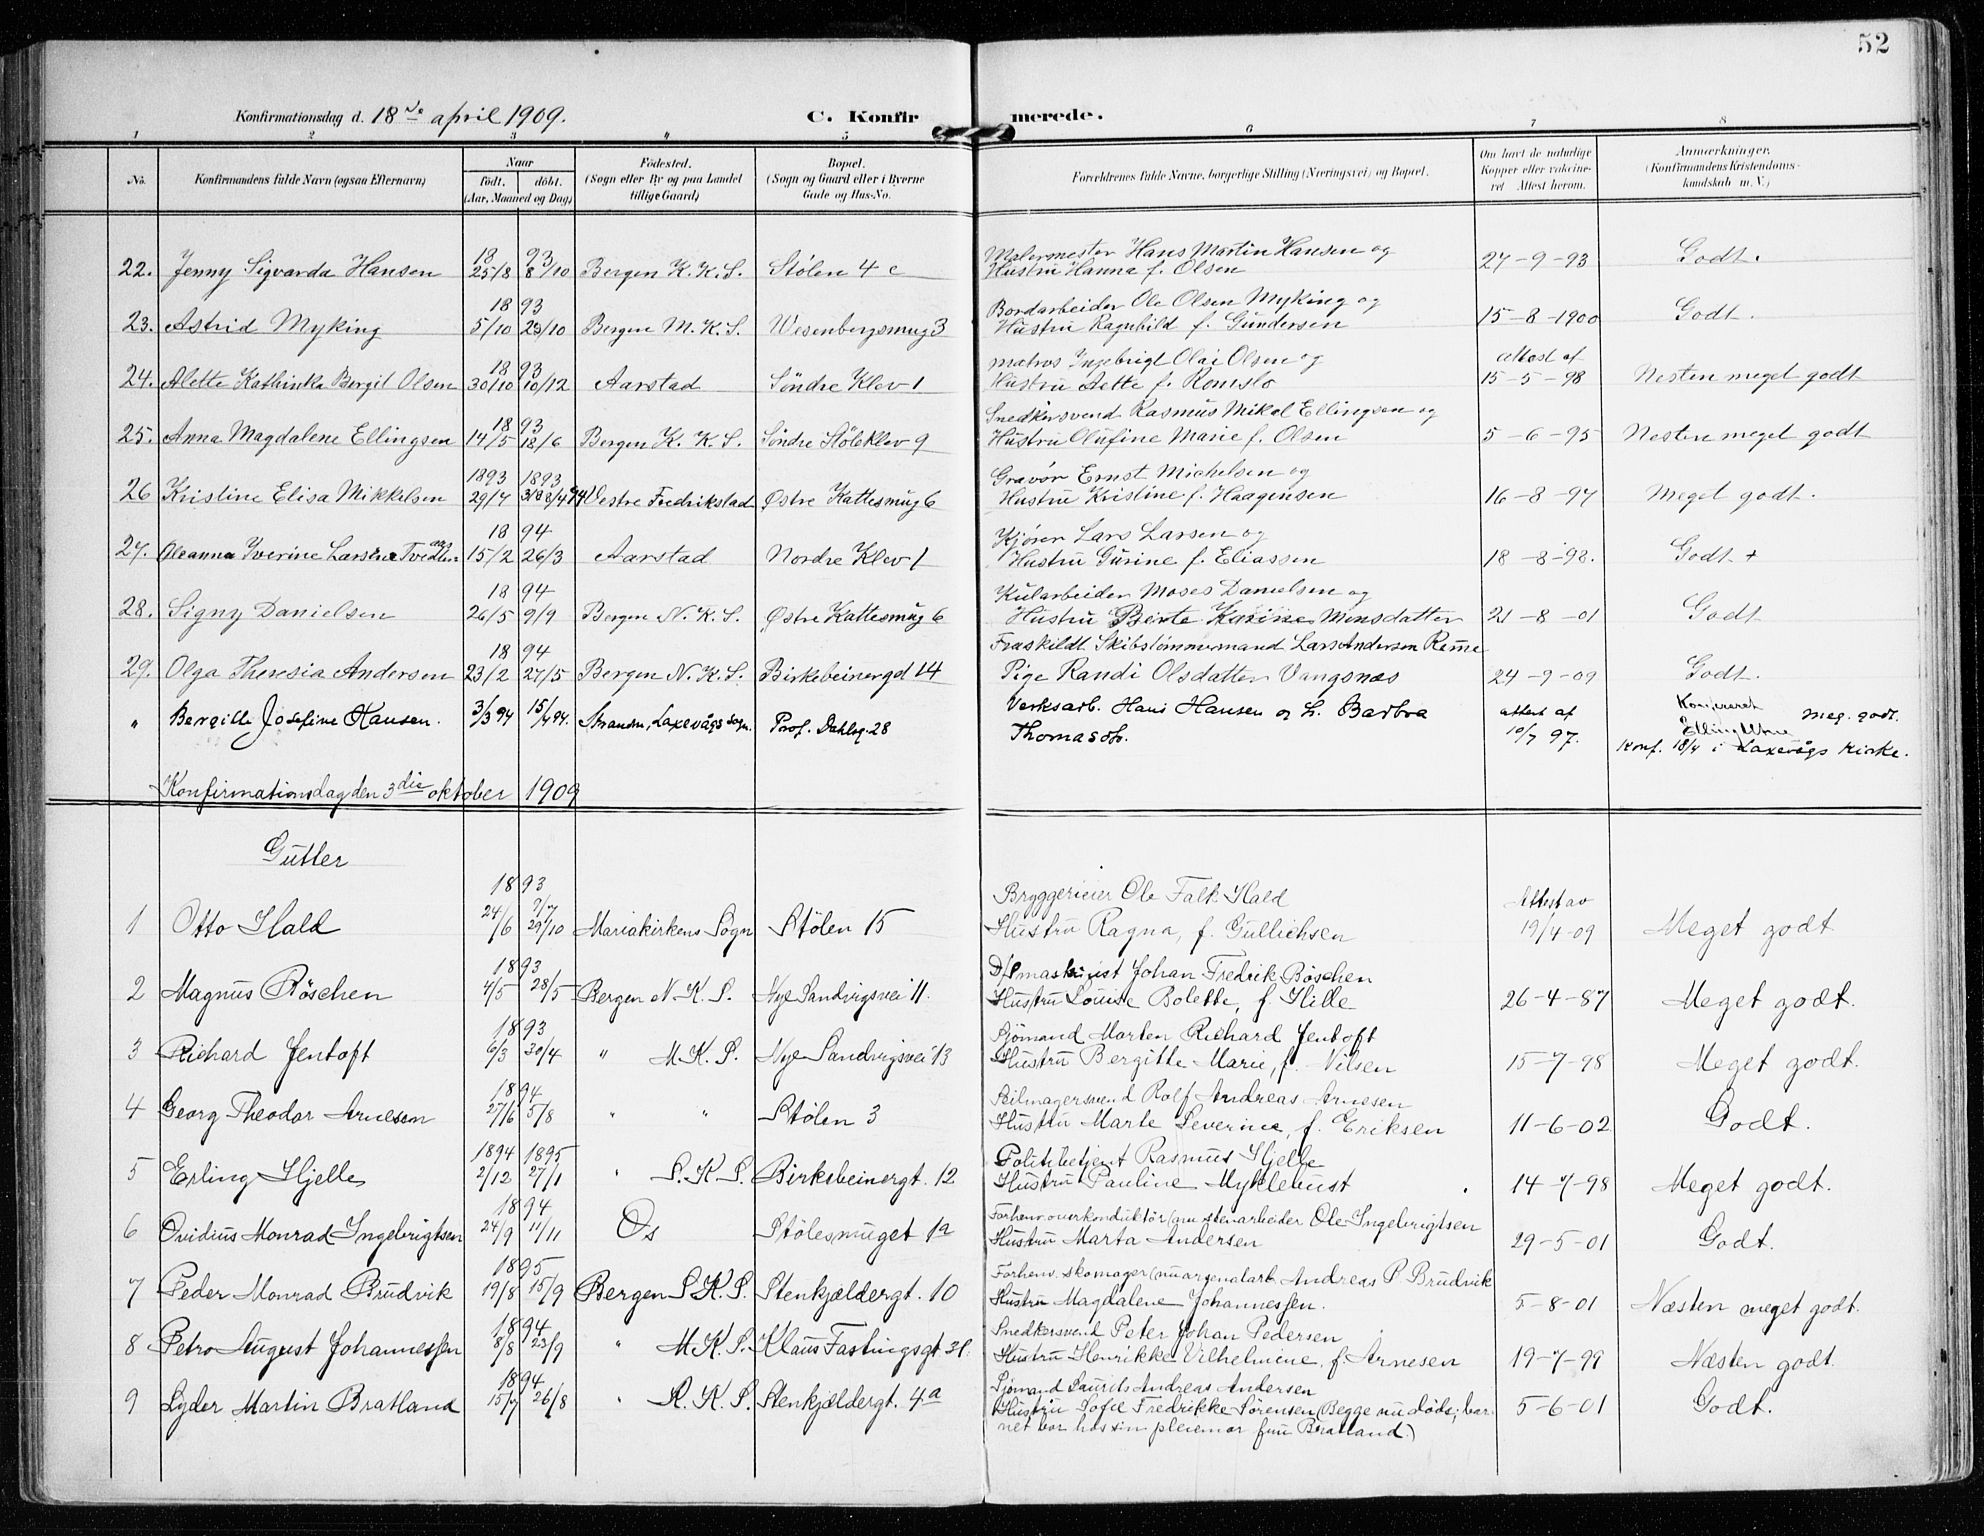 52
Konfirmationsdag d. 18de april 1909. C. Konfirmerede.
1 2 3 " 5 6 7 8
No. Konfirmandens fulde Navn (ogsaa Efternavn) Naar födt. döbt. (Aar, Maaned og Dag) Födested. (Sogn eller By og paa Landet tillige Gaard) Bopæl. (Sogn og Gaard eller i Byerne Gade og Hus-No. Forældrenes fulde Navne, borgerlige Stilling (Næringsvei) og Bopæl. Om havt de naturlige Kopper eller vaccineret Attest herom. Anmærkninger. (Konfirmandens Kristendomskundskab m. V.)
18 93 Malermester Hans Martin Hansen og
22. Jenny Sigvarda Hansen 25/8 8/10 Bergen K. K. S. Stölen 4 c Hustru Hanna f. Olsen 27-9-93 Godt.
18 93 Bordarbeider Ole Olsen Myking og
23. Astrid Myking 5/10 23/10 Bergen M. K. S. Wesenbergsmug 3 Hustru Ragnhild f. Gundersen 15-8-1900 Godt.
18 93 matros Ingebrigt Olai Olsen og attest af
24. Alette Kathinka Bergit Olsen 30/10 10/12 Aarstad Söndre Klev 1 Hustru Aette f. Romslo 15-5-98 Nesten meget godt
18 93 Snedkersvend Rasmus Mikal Ellingsen og
25. Anna Magdalene Ellingsen 14/5 18/6 Bergen K. K. S. Söndre Stöleklev 9 Hustru Olufine Marie f. Olsen 5-6-95 Nesten meget godt
1893 1893 Gravör Ernst Michelsen og
26 Kristine Elisa Mikkelsen 29/7 Vestre Fredrikstad Østre Kattesmug 6 Hustru Kristine f. Haagensen 16-8-97 Meget godt.
18 94 Kjörer Lars Larsen og
27. Oleanna Iverine Larsen 15/2 26/3 Aarstad Nordre Klev 1 Hustru Gurine f. Eliassen 18-8-98. Godt +
18 94 Kularbeider Moses Danielsen og
28. Signy Danielsen 26/5 9/9 Bergen N. K. S. Østre Kattesmug 6 Hustru Berte Karine Monsdatter 21-8-01 Godt
18 94 Fraskildt Skibstömmermand Lars Andersen Remme
29. Olga Theresia Andersen 23/2 27/5 Bergen N. K. S. Birkebeinergd 14 Pige Randi Olsdatter Vangsnæs 24-9-09 Godt.
" Bergitte Josefine Hansen. 3/3 94 15/4 94. Laxevågs sogn. Prof. Dahlsg. 28 Verksarb. Hans Hansen og h. Barbra attest af Konfereret meg. godt.
Thomasdt. 10/7 97. Konf. 18/4 i Laxevågs kirke.
Konfirmationsdag den 3die oktober 1909
Gutter
18 93 Bryggerieier Ole Falk Hald Attest av
1 Otto Hald 24/6 29/10 Mariakirkens Sogn Stölen 15 Hustru Ragna, f. Gullichsen 19/4-09 Meget godt
18 93 D/S maskinist Johan Fredrik Röschen
2 Magnus Röschen 4/5 28/5 Bergen N. K. S. Nye Sandvigsvei 11. Hustru Louise Bolette, f. Hille 26-4-87 Meget godt.
18 93 Sjömand Morten Richard Jentoft
3 Richard Jentoft 6/3 30/4 " M. K. S. Nye Sandvigsvei 13 Hustru Bergitte Marie, f. Nilsen 15-7-98 Meget godt.
18 94 Seilmagersvend Rolf Andreas Arnesen
4 Georg Theodor Arnesen 27/6 5/8 " " Stölen 3 Hustru Marte Severine, f. Eriksen 11-6-02 Godt.
1894 1895 Politibetjent Rasmus Hjelle
5 Erling Hjelle 2/12 27/1 " S. K. S. Birkebeinergt. 12 Hustru Pauline Myklebust 14-7-98 Meget godt.
18 94 Forhenv. overkonduktör (nu stenarbeider Ole Ingebrigtsen
6 Ovidius Monrad Ingebrigtsen 24/9 11/11 Os Stölesmuget 1a Hustru Marta Andersen 29-5-01 Godt.
18 95 Forhenv. skomager (nu arsenalarb. Andreas P. Brudvik
7 Peder Monrad Brudvik 19/8 15/9 Bergen S. K. S. Stenkjældergt. 10 Hustru Magdalene Johannessen. 5-8-01 Næsten meget godt.
18 94 Snedkersvend Peter Johan Pedersen
8 Petro August Johannessen 8/8 23/9 " M. K. S. Klaus Fastingsgt 31. Hustru Henrikke Vilhelmine, f. Arnesen 19-7-99 Næsten godt.
18 94 Sjömand Laurits Andreas Andersen
9 Lyder Martin Bratland 15/7 26/8 " K. K. S. Stenkjældergt. 4a Hustru Sofie Fredrikke Sörensen (Begge nu döde; bar- 5-6-01 Godt.
net bor hos sin pleiemor fru Bratland.)